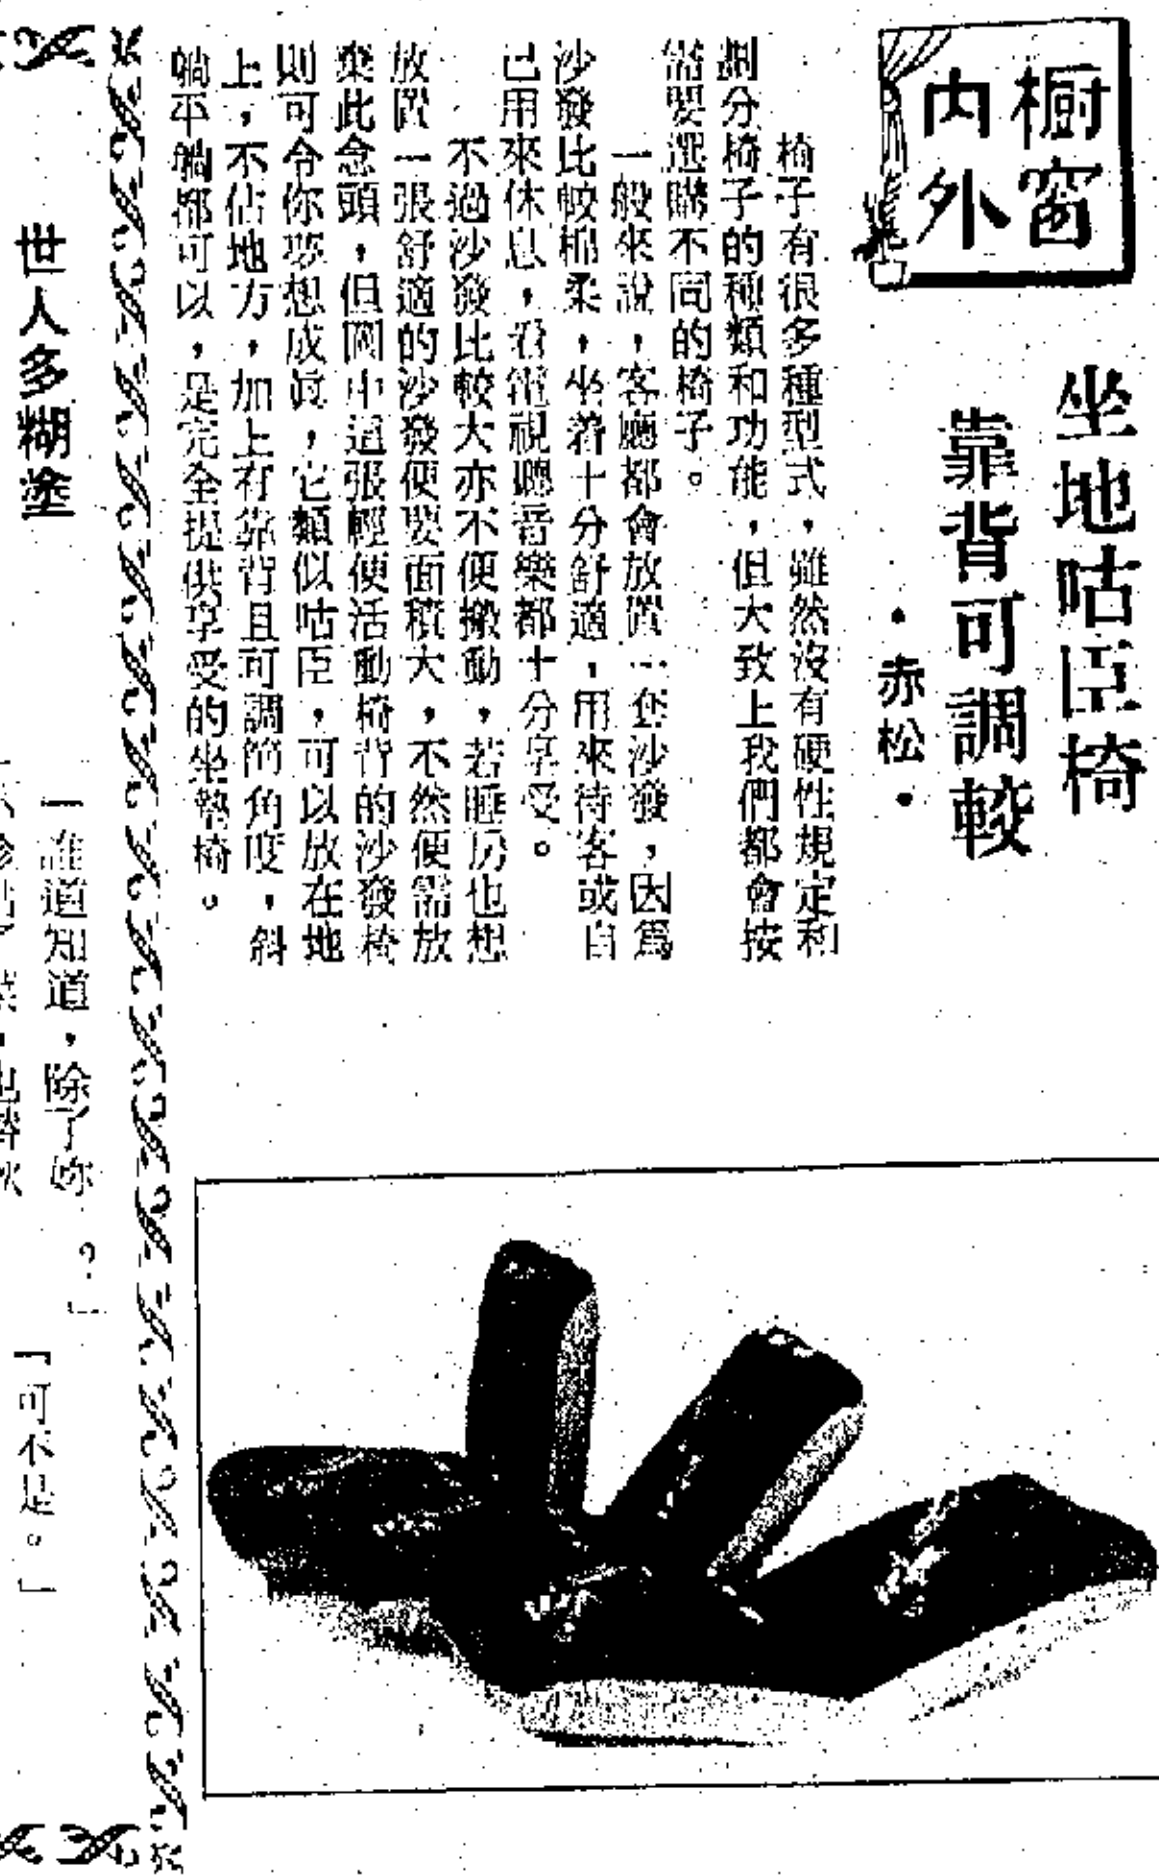 橱窗
内外
坐地咕臣椅
靠背可調較
·赤松·
椅子有很多種型式，雖然沒有硬性規定和
劃分椅子的種類和功能，但大致上我們都會按
需要選購不同的椅子。
一般來說，客廳都會放置一套沙發，因爲
沙發比較棉柔，坐着十分舒適，用來待客或自
己用來休息，看電視聽音樂都十分享受。
不過沙發比較大亦不便搬動，若睡房也想
放置一張舒適的沙發便要面積大，不然便需放
棄此念頭，但圖中這張輕便活動椅背的沙發椅
則可令你夢想成眞，它類似咕臣，可以放在地
上，不佔地方，加上有靠背且可調節角度，斜
躺平躺都可以，是完全提供享受的坐墊椅。
世人多糊塗
一誰道知道，除了妳？」
「可不是。」